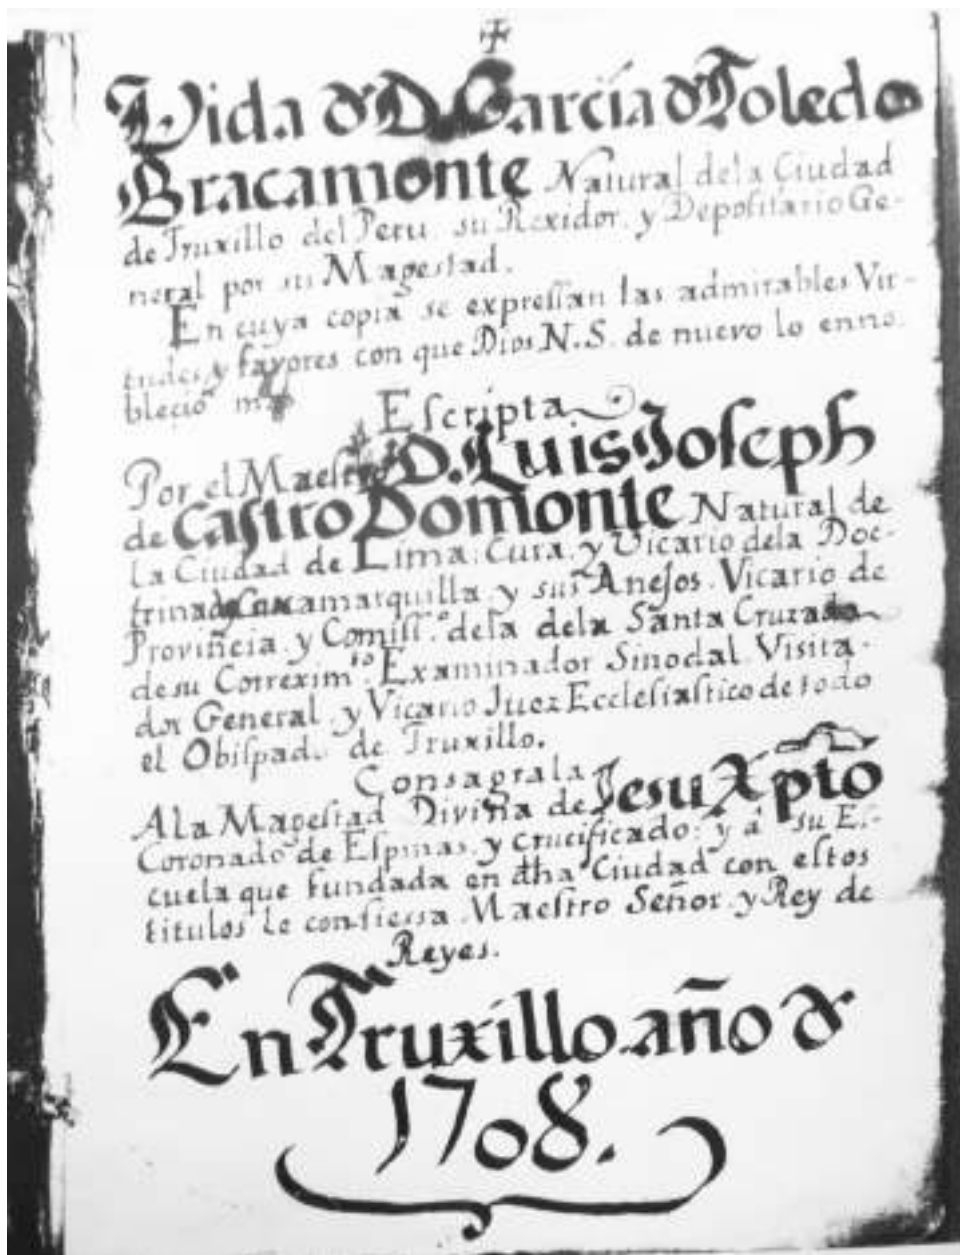 Vida d D. García d Toledo
Bracamonte Natural de la Ciudad
de Truxillo del Peru, su Rexidor, y Depoſitario Ge-
neral por su Mageſtad.
En cuya copia se expreſſan las admirables Vir-
tudes, y fayores con que Dios N.S. de nuevo lo enno-
bleció
Eſcripta
Por el Maeſtro D. Luis Joſeph
de Caſtro Domonte Natural de
la Ciudad de Lima, Cura, y Vicario dela Doc-
trina de Caxamarquilla y sus Anejos, Vicario de
Proviñcia, y Comiſſ.º desa dela Santa Cruzada
de su Correxim.to Examinador Sinodal, Viſita-
dor General, y Vicario Juez Eccleſiaſtico de todo
el Obiſpado de Truxillo.
Conſagrala
A La Mageſtad Diviña de Jesu Xpto
Coronado de Eſpinas, y crucificado; y á su Eſ-
cuela que fundada en dha Ciudad con eſtos
titulos le confieſſa Maeſtro Señor, y Rey de
Reyes.
En Truxillo año d
1708.